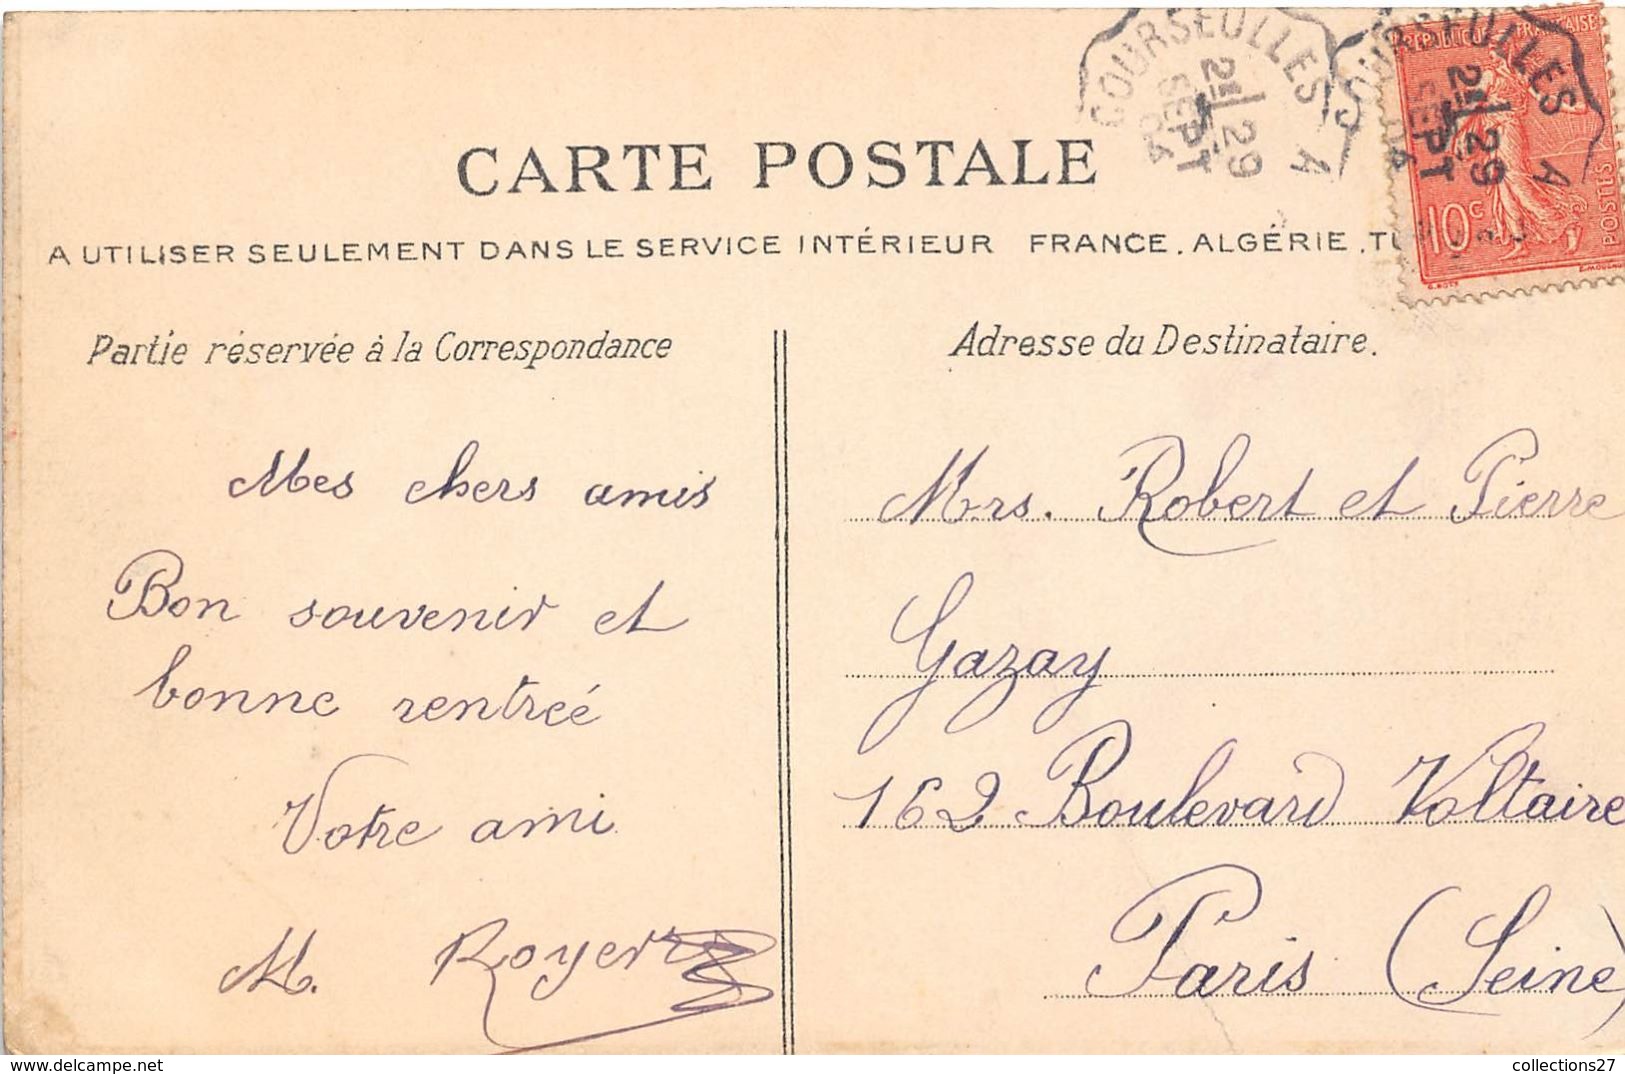 COURSEULLES A
2E / 29
SEPT
04
COURSEULLES A
2E / 29
SEPT
04
REPUBLIQUE FRANÇAISE
10c
POSTES
CARTE POSTALE
A UTILISER SEULEMENT DANS LE SERVICE INTÉRIEUR FRANCE. ALGÉRIE. TU
Partie réservée à la Correspondance
Mes chers amis
Bon souvenir et
bonne rentrée
Votre ami
M. Royer
Adresse du Destinataire.
Mrs. Robert et Pierre
Gazay
162 Boulevard Voltaire
Paris (Seine)
www.delcampe.net
collections27